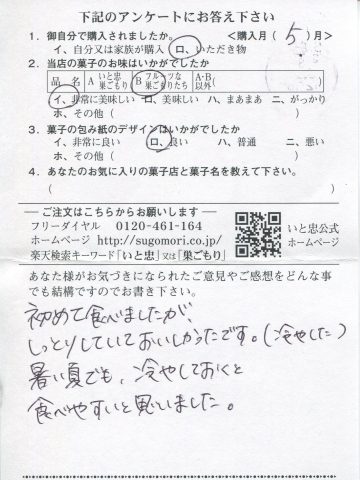 下記のアンケートにお答え下さい
1．御自分で購入されましたか。 <購入月（ 5 ）月>
イ、自分又は家族が購入 ロ、いただき物
2．当店の菓子のお味はいかがでしたか
品 名 A いと忠巣ごもり B フルーツな巣ごもりたち A・B以外（ ）
イ、非常に美味しい ロ、美味しい ハ、まあまあ ニ、がっかり
ホ、その他（ ）
3．菓子の包み紙のデザインはいかがでしたか
イ、非常に良い ロ、良い ハ、普通 ニ、悪い
ホ、その他（ ）
4．あなたのお気に入りの菓子店と菓子名を教えて下さい。
（ ）
― ご注文はこちらからお願いします ―
フリーダイヤル 0120-461-164
ホームページ http://sugomori.co.jp/
楽天検索キーワード「いと忠」又は「巣ごもり」
いと忠公式
ホームページ
あなた様がお気づきになられたご意見やご感想をどんな事
でも結構ですのでお書き下さい。
初めて食べましたが、
しっとりしていておいしかったです。（冷やした）
暑い夏でも、冷やしておくと
食べやすいと思いました。